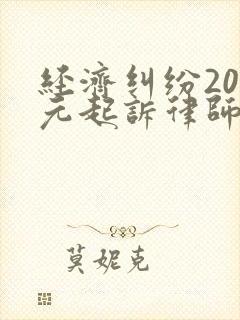 經濟糾纷20
元起訴律師
莫妮克